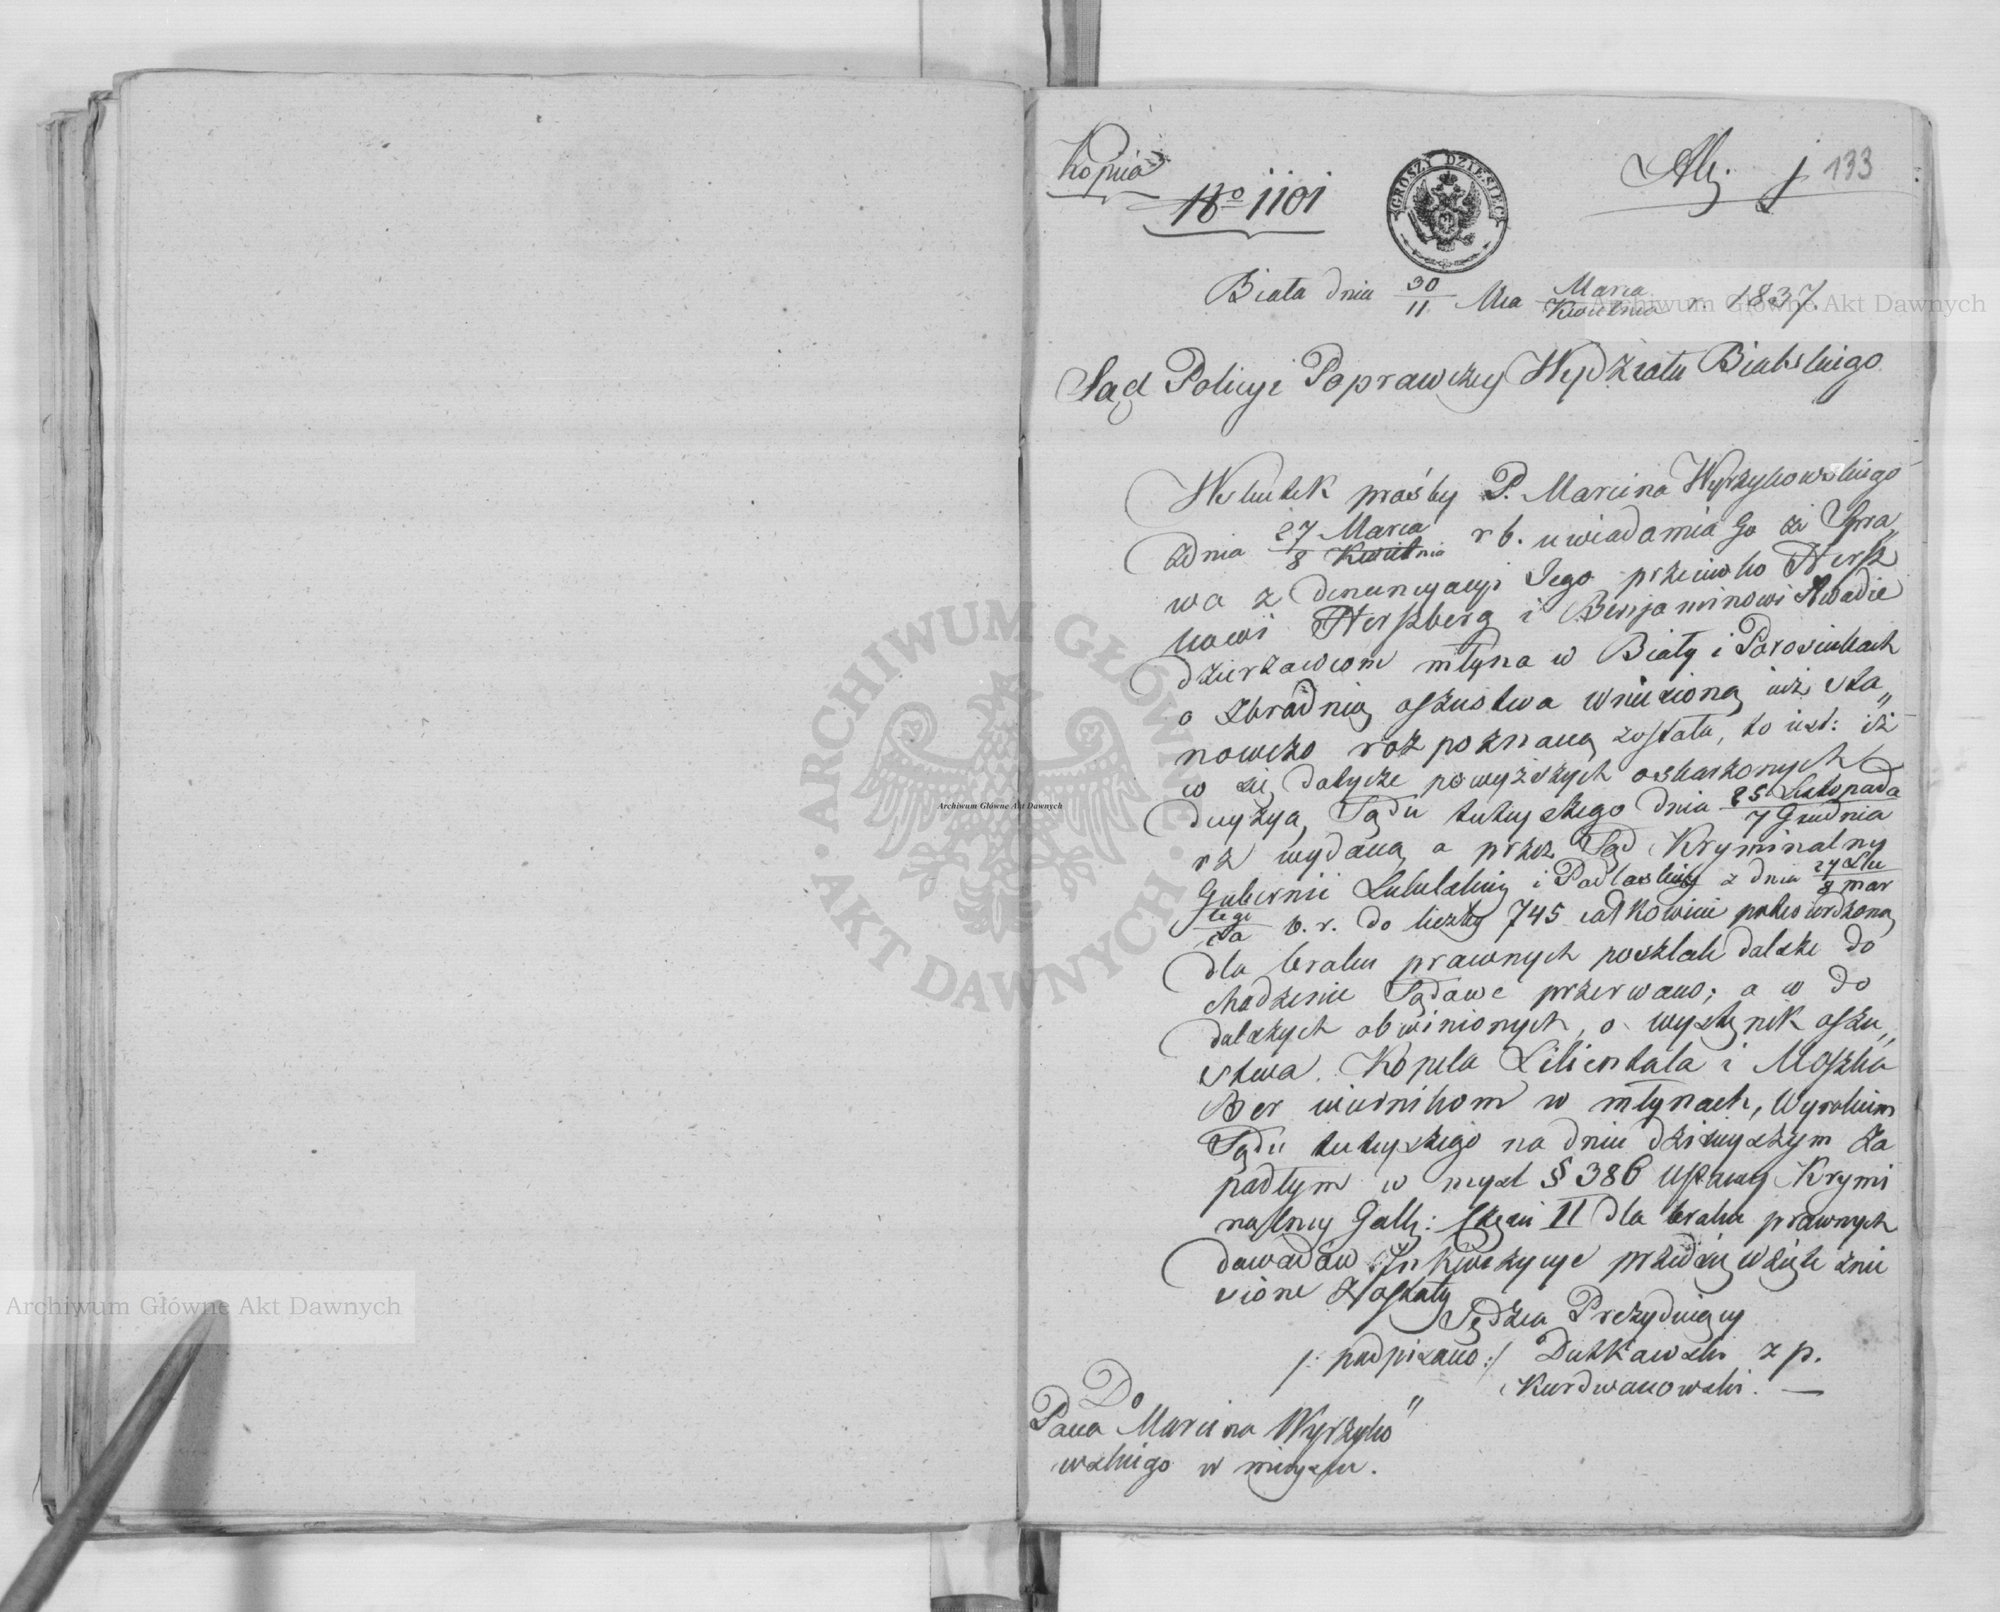 Kopia
No 1101
GROSZY DZIESIĘĆ
133
Biała dnia 30/11 Mca Marca/Kwietnia r. 1837.
Sąd Policyi Poprawczey Wydziału Bialskiego
Wskutek prośby P. Marcina Wyrzykowskiego
z dnia 27 Marca/8 Kwietnia r b. uwiadamia Go że Spra„
wa z denuncyacyi Jego przeciwko Hersz
kowi Herszberg i Benjaminowi Awadie
dzierzawcom młyna w Biały i Porosiukach
o zbrodnią oszustwa wniesioną już sta„
nowczo rozpoznaną została, to iest: iż
w się dotycze powyższych oskarżonych
decyzyą Sądu tutejszego dnia 25 Listopada/7 Grudnia
rz wydaną a przez Sąd Kryminalny
Gubernii Lubelskiey i Podlaskiey z dnia 24 Lu/8 mar
tego/ca b. r. do liczby 745 całkowicie potwierdzoną
dla braku prawnych poszlak dalsze do
chodzenie Sądowe przerwano; a w do
dalszych obwinionych, o występek oszu„
stwa. Kopela Lilientala i Moszka
Ber wiernikom w młynach, Wyrokiem
Sądu tutejszego na dniu dzisiejszym za
padłym w myśl § 386 Ustawy Krymi
nalney Gall: Części II dla braku prawnych
dowodów Inkwizycye przedsięwzięte znie
sione zostały
Sędzia Prezydujący
/: podpisano:/ Dutkowski z p.
Kurdwanowski. —
Do
Pana Marcina Wyrzyko„
wskiego w mieyscu.
ARCHIWUM GŁÓWNE AKT DAWNYCH
Archiwum Główne Akt Dawnych
Archiwum Główne Akt Dawnych
Archiwum Główne Akt Dawnych